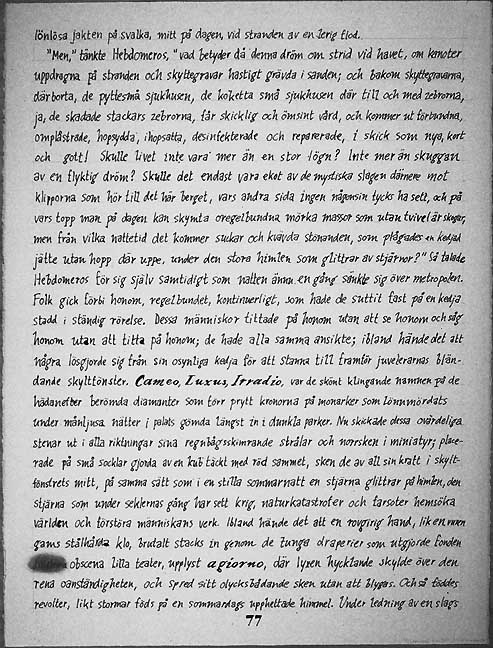 lönlösa jakten på svalka, mitt på dagen, vid stranden av en lerig flod.
"Men," tänkte Hebdomeros, "vad betyder då denna dröm om strid vid havet, om kanoter
uppdragna på stranden och skyttegravar hastigt grävda i sanden; och bakom skyttegravarna,
därborta, de pyttesmå sjukhusen, de koketta små sjukhusen där till och med zebrorna,
ja, de skadade stackars zebrorna, får skicklig och ömsint vård, och kommer ut förbundna,
omplåstrade, hopsydda, ihopsatta, desinfekterade och reparerade, i skick som nya, kort
och gott! Skulle livet inte vara mer än en stor lögn? Inte mer än skuggan
av en flyktig dröm? Skulle det endast vara ekot av de mystiska slagen därnere mot
klipporna som hör till det här berget, vars andra sida ingen någonsin tycks ha sett, och på
vars topp man på dagen kan skymta oregelbundna mörka massor som utan tvivel är skogar,
men från vilka nattetid det kommer suckar och kvävda stönanden, som plågades en kedjad
jätte utan hopp där uppe, under den stora himlen som glittrar av stjärnor?" Så talade
Hebdomeros för sig själv samtidigt som natten ännu en gång sänkte sig över metropolen.
Folk gick förbi honom, regelbundet, kontinuerligt, som hade de suttit fast på en kedja
stadd i ständig rörelse. Dessa människor tittade på honom utan att se honom och såg
honom utan att titta på honom; de hade alla samma ansikte; ibland hände det att
några lösgjorde sig från sin osynliga kedja för att stanna till framför juvelerarnas blän-
dande skyltfönster. Cameo, Luxus, Irradio, var de skönt klingande namnen på de
hädanefter berömda diamanter som förr prytt kronorna på monarker som lönnmördats
under månljusa nätter i palats gömda längst in i dunkla parker. Nu skickade dessa ovärderliga
stenar ut i alla riktningar sina regnbågsskimrande strålar och norrsken i miniatyr; place-
rade på små socklar gjorda av en kub täckt med röd sammet, sken de av all sin kraft i skylt-
fönstrets mitt, på samma sätt som i en stilla sommarnatt en stjärna glittrar på himlen, den
stjärna som under seklernas gång har sett krig, naturkatastrofer och farsoter hemsöka
världen och förstöra människans verk. Ibland hände det att en rovgirig hand, lik en
gams stålhårda klo, brutalt stacks in genom de tunga draperier som utgjorde fonden
obscena lilla teater, upplyst a giorno, där lyxen hycklande skylde över den
rena oanständigheten, och spred sitt olycksbådande sken utan att blygas. Och så föddes
revolter, likt stormar föds på en sommardags upphettade himmel. Under ledning av en slags
77